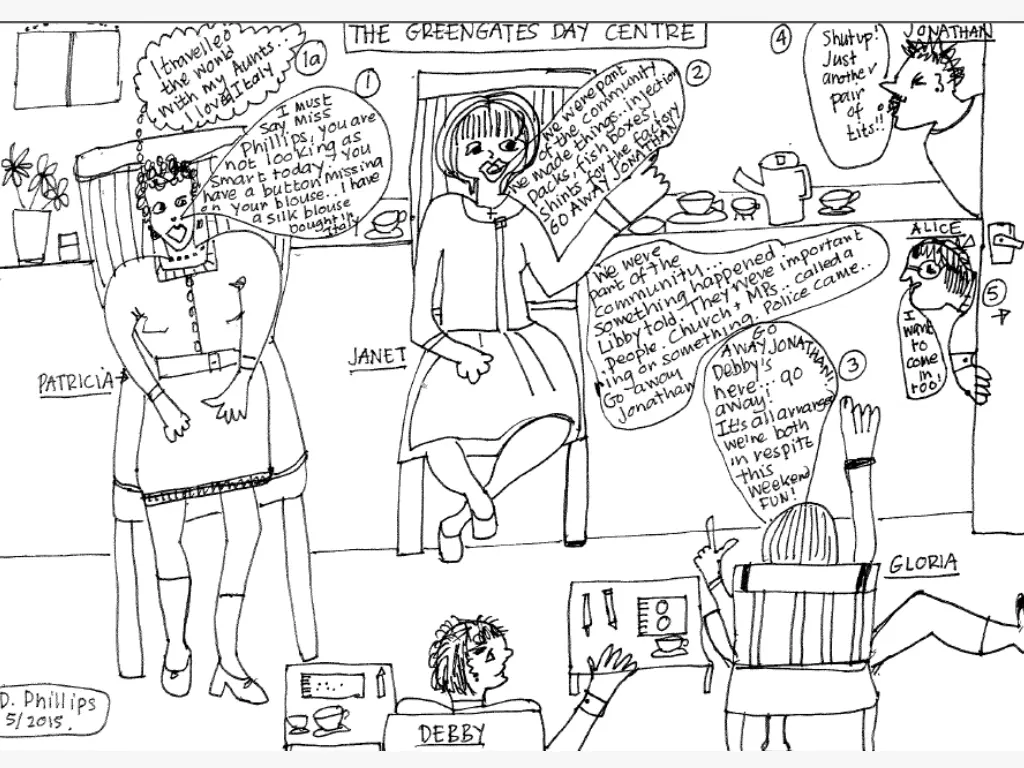 THE GREENGATES DAY CENTRE
1a
I travelled
the world
with my Aunts..
I loved Italy
1
I must
say, Miss
Phillips, you are
not looking as
smart today - you
have a button missing
on your blouse.. I have
a silk blouse
bought in
Italy
2
We were part
of the community
we made things.. injection
packs, fish boxes,
shirts for the factory
GO AWAY JONATHAN?
4
Shut up!
Just
another
pair
of
tits!!
JONATHAN
ALICE
5
I
want
to
come
in
too!
We were
part of the
community...
something happened.
Libby told. They were important
people. Church + MPs.. called a
ring or something. Police came..
Go away
Jonathan
3
GO
AWAY JONATHAN
Debby's
here... go
away!
It's all arranged
we're both
in respite
this
weekend
FUN!
PATRICIA
JANET
GLORIA
DEBBY
D. Phillips
5/2015.